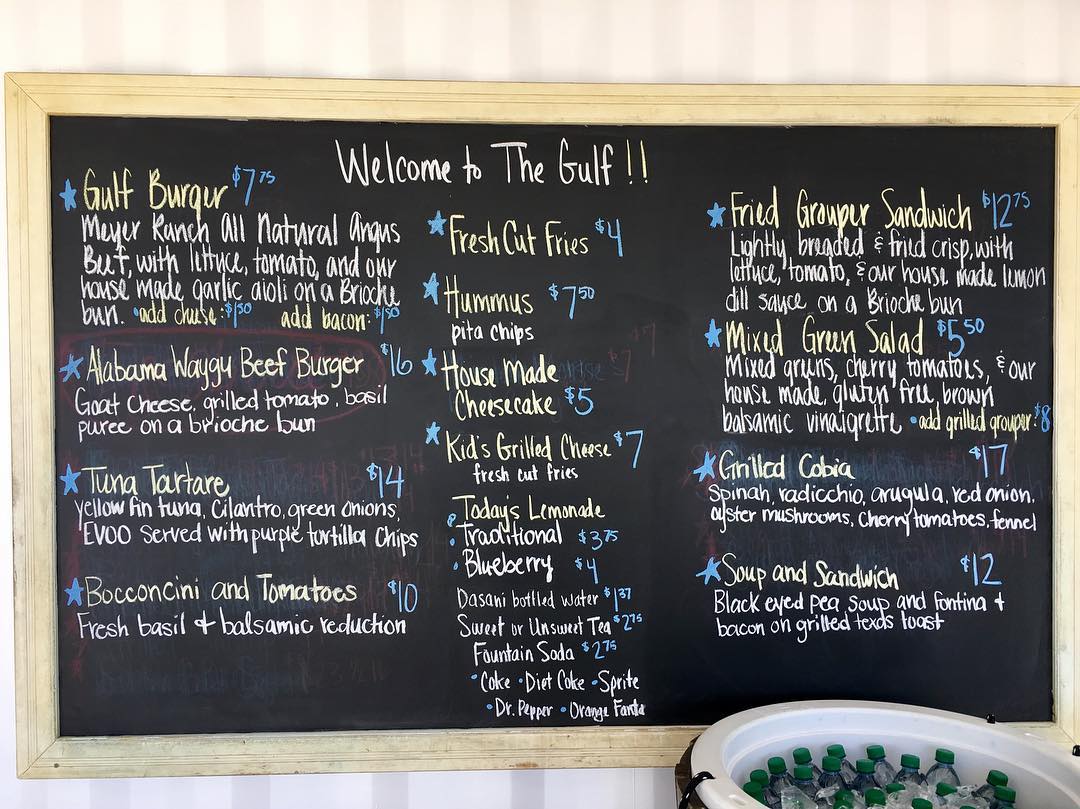 Welcome to The Gulf !!
Gulf Burger $7.75
Meyer Ranch All Natural Angus
Beef, with lettuce, tomato, and our
house made garlic aioli on a Brioche
bun. • add cheese: $1.50 add bacon: $1.50
Alabama Waygu Beef Burger $16
Goat Cheese, grilled tomato, basil
puree on a brioche bun
Tuna Tartare $14
yellow fin tuna, Cilantro, green onions,
EVOO served with purple tortilla chips
Bocconcini and Tomatoes $10
Fresh basil + balsamic reduction
Fresh Cut Fries $4
Hummus $7.50
pita chips
House Made
Cheesecake $5
Kid's Grilled Cheese $7
fresh cut fries
Today's Lemonade
• Traditional $3.75
• Blueberry $4
Dasani bottled water $1.37
Sweet or Unsweet Tea $2.75
Fountain Soda $2.75
• Coke • Diet Coke • Sprite
• Dr. Pepper • Orange Fanta
Fried Grouper Sandwich $12.75
Lightly breaded & fried crisp, with
lettuce, tomato, & our house made lemon
dill sauce on a Brioche bun
Mixed Green Salad $5.50
Mixed greens, cherry tomatoes, & our
house made, gluten free, brown
balsamic vinaigrette • add grilled grouper: $8
Grilled Cobia $17
Spinah, radicchio, arugula, red onion,
oyster mushrooms, cherry tomatoes, fennel
Soup and Sandwich $12
Black eyed pea soup and fontina +
bacon on grilled texas toast